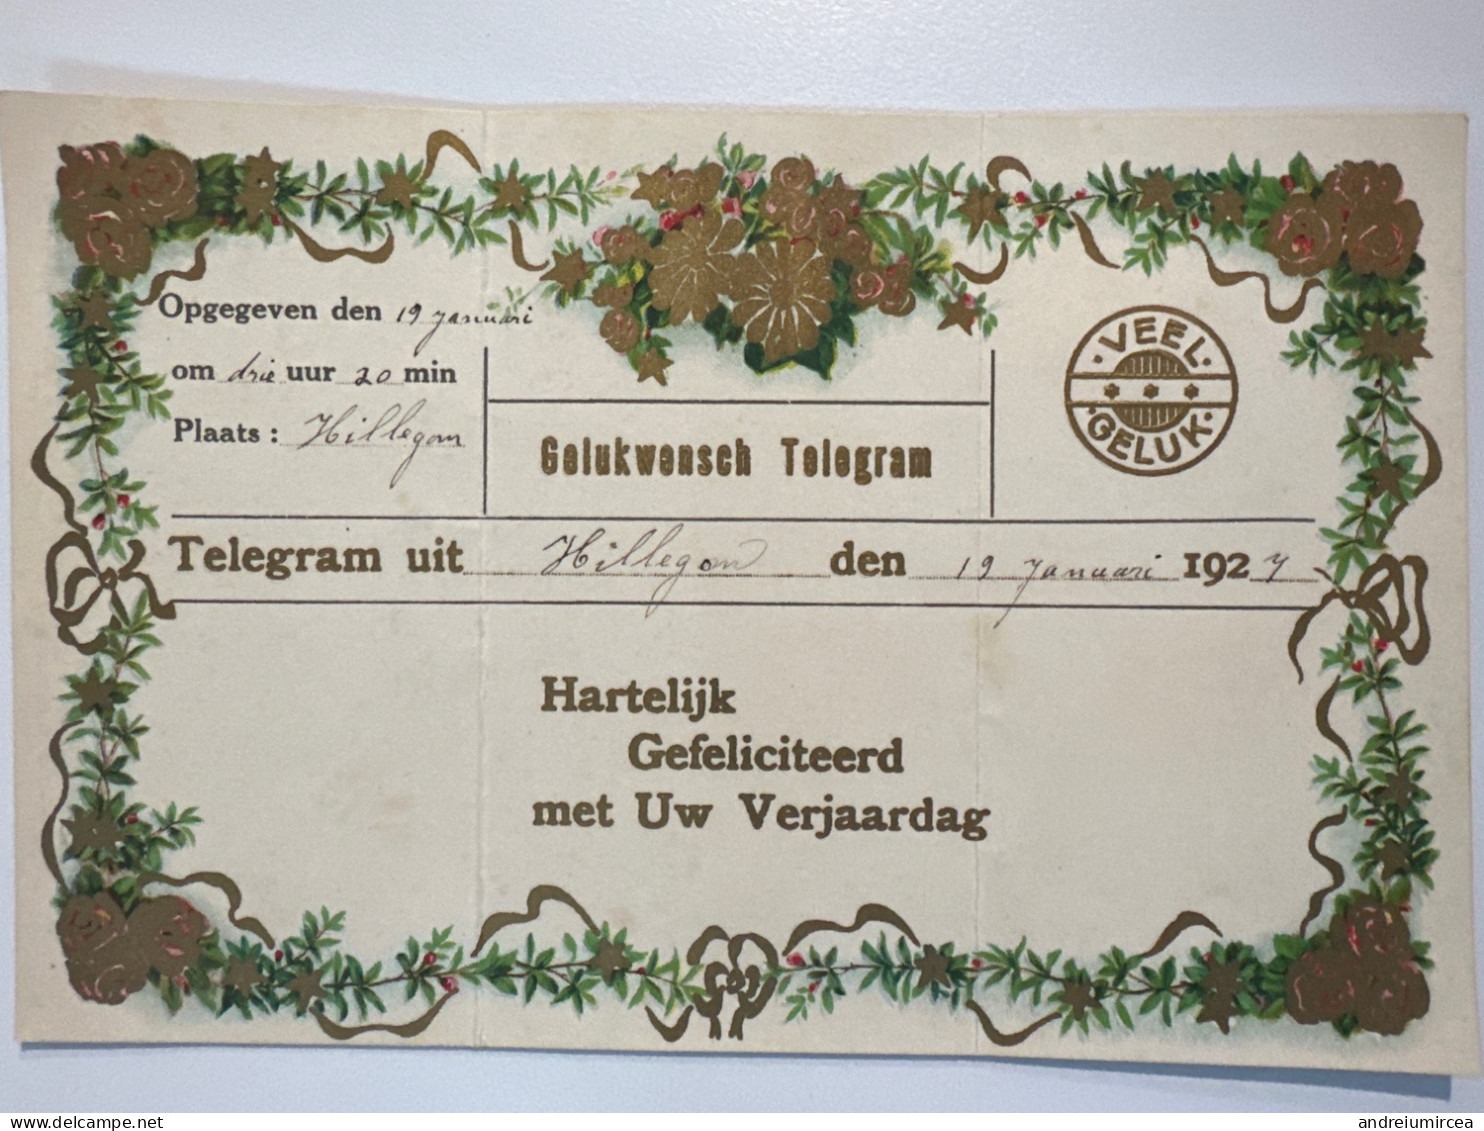 Opgegeven den 19 januari
om drie uur 20 min
Plaats: Hillegom
Gelukwensch Telegram
· VEEL ·
· GELUK ·
Telegram uit Hillegom den 19 januari 1927
Hartelijk
Gefeliciteerd
met Uw Verjaardag
delcampe.net
andreiumircea